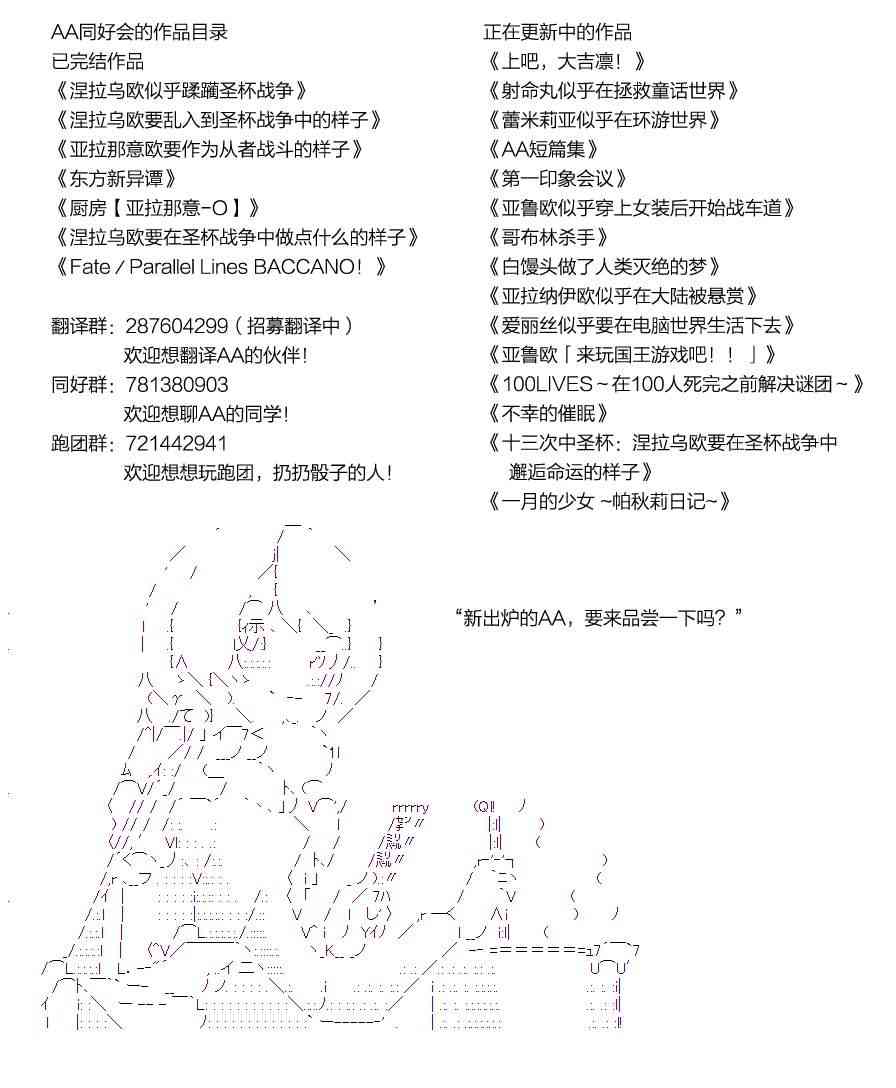 AA同好会的作品目录
已完结作品
《涅拉乌欧似乎蹂躏圣杯战争》
《涅拉乌欧要乱入到圣杯战争中的样子》
《亚拉那意欧要作为从者战斗的样子》
《东方新异谭》
《厨房【亚拉那意-O】》
《涅拉乌欧要在圣杯战争中做点什么的样子》
《Fate／Parallel Lines BACCANO！》
翻译群：287604299（招募翻译中）
欢迎想翻译AA的伙伴！
同好群：781380903
欢迎想聊AA的同学！
跑团群：721442941
欢迎想想玩跑团，扔扔骰子的人！
正在更新中的作品
《上吧，大吉凛！》
《射命丸似乎在拯救童话世界》
《蕾米莉亚似乎在环游世界》
《AA短篇集》
《第一印象会议》
《亚鲁欧似乎穿上女装后开始战车道》
《哥布林杀手》
《白馒头做了人类灭绝的梦》
《亚拉纳伊欧似乎在大陆被悬赏》
《爱丽丝似乎要在电脑世界生活下去》
《亚鲁欧「来玩国王游戏吧！！」》
《100LIVES～在100人死完之前解决谜团～》
《不幸的催眠》
《十三次中圣杯：涅拉乌欧要在圣杯战争中
邂逅命运的样子》
《一月的少女 ~帕秋莉日记~》
“新出炉的AA，要来品尝一下吗？”